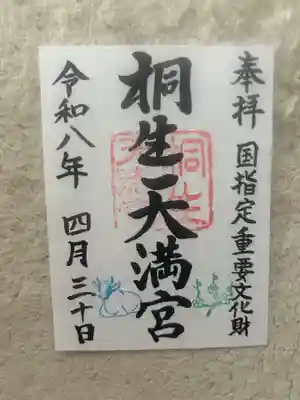 奉拝 国指定重要文化財
桐生天満宮
令和八年 四月三十日